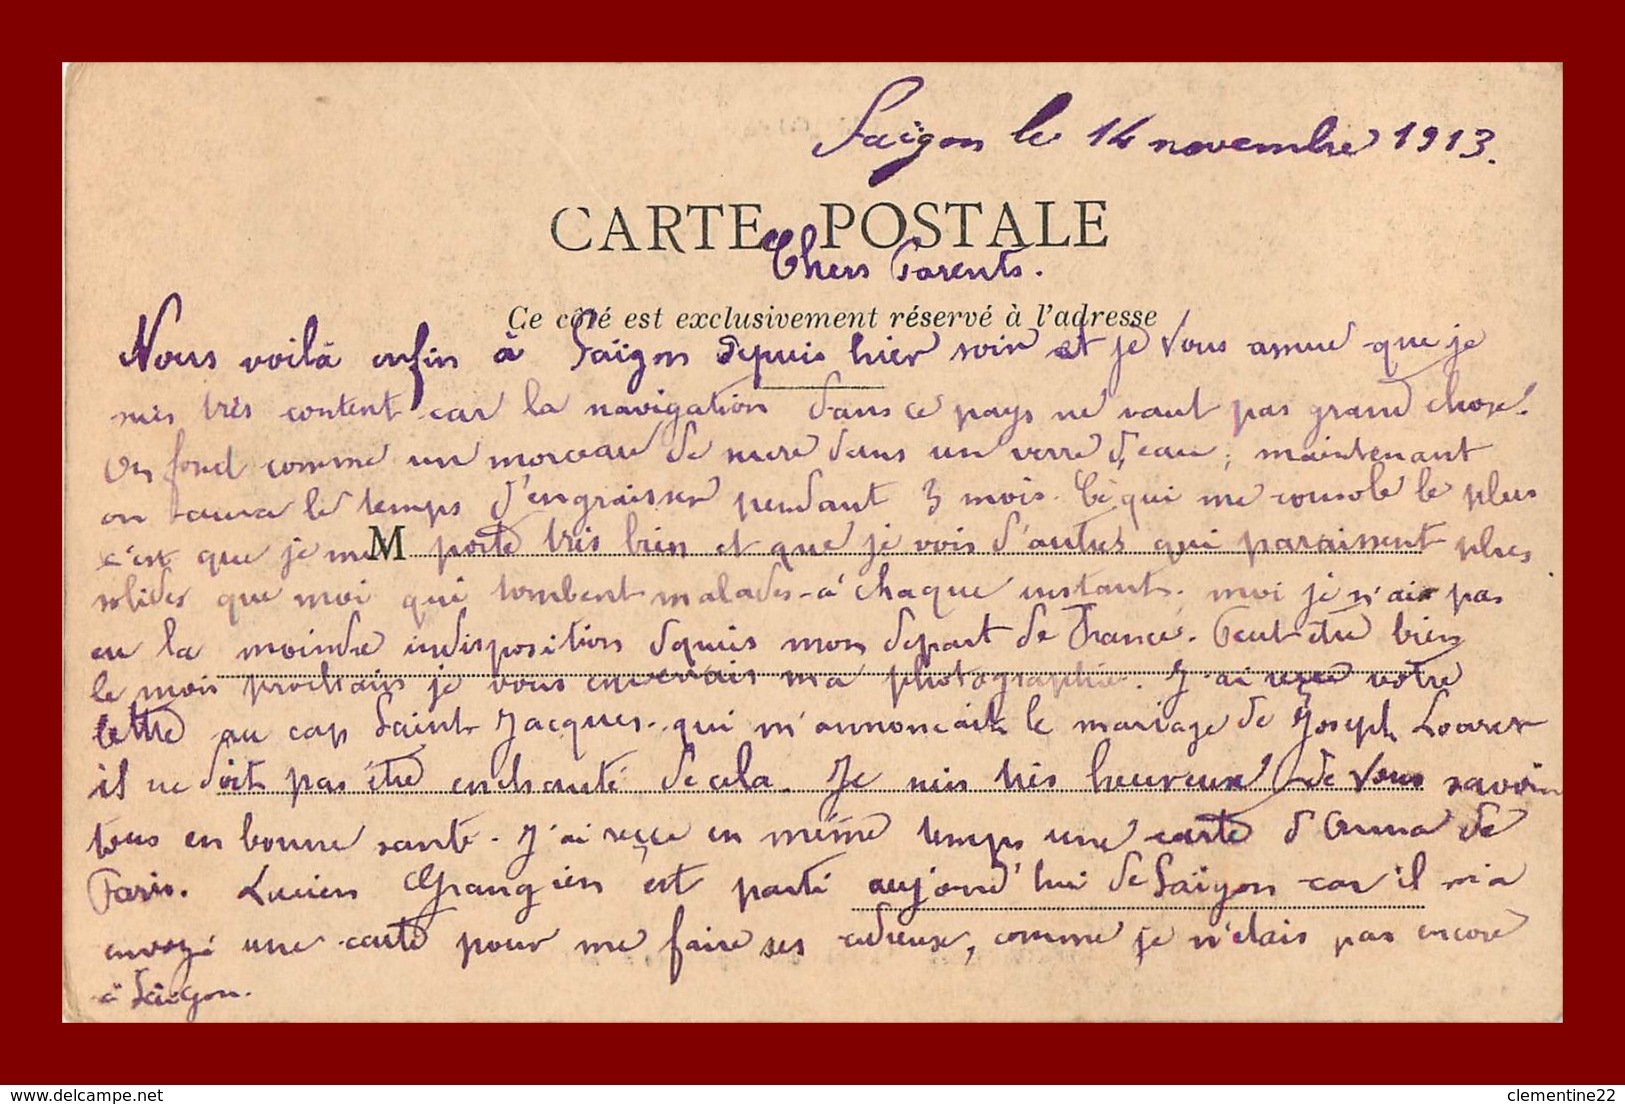 Saïgon le 14 novembre 1913.
CARTE POSTALE
Chers Parents.
Ce côté est exclusivement réservé à l'adresse
Nous voilà enfin à Saïgon depuis hier soir et je vous assure que je
suis très content car la navigation dans ce pays ne vaut pas grand chose.
On fond comme un morceau de sucre dans un verre d'eau, maintenant
on aura le temps d'engraisser pendant 3 mois. Ce qui me console le plus
c'est que je me M porte très bien et que je vois d'autres qui paraissent plus
solides que moi qui tombent malades à chaque instant, moi je n'ai pas
eu la moindre indisposition depuis mon depart de France. Peut être bien
le mois prochain je vous enverrais ma photographie. J'ai reçue votre
lettre au cap Saint Jacques qui m'annonçait le mariage de Joseph
il ne doit pas être enchanté de cela. Je suis très heureux de vous savoir
tous en bonne santé. J'ai reçue en même temps une carte d'Anna de
Paris. Lucien est parti aujourd'hui de Saïgon car il m'a
envoyé une carte pour me faire ses adieux, comme je n'étais pas encore
à Saïgon.
delcampe.net
clementine22